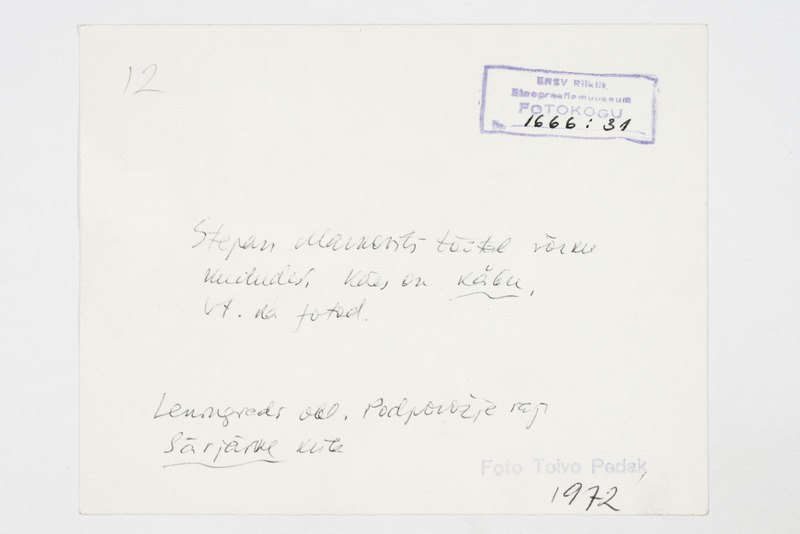 12
ENSV Riiklik
Etnograafiamuuseum
FOTOKOGU
№ 1666:31
Stepan töötab võrku
Käes on käbu,
vt. ka fotod.
Leningradi obl. Podporožje raj.
Särjärve küla
Foto Toivo Pedak,
1972